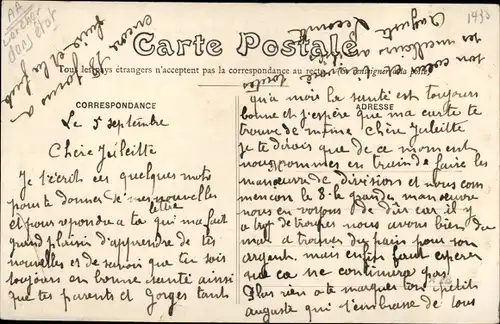 1433
AA
dans état
encore 18 jours a
faire et la fuite
Auguste Lecomt
ses meilleurs
ton
Carte Postale
Tous les pays étrangers n'acceptent pas la correspondance au recto
CORRESPONDANCE
Le 5 septembre
Chère Juliette
Je t'écrit ces quelques mots
pour te donner de mes nouvelles
et pour repondre a ta lettre qui ma fait
grand plaisir d'apprendre de tes
nouvelles et de savoir que tu sois
toujours en bonne santé ainsi
que tes parents et Gorges tants
ADRESSE
qu'a mois la santé est toujours
bonne et j'espère que ma carte te
trouve de même Chère Juliette
je te dirais que de ce moment
nous sommes en train de faire les
manœuvre de divisions et nous com-
mencon le 8 le grande manœuvre
nous en voyons de dur car il y
a trop de troupes nous avons bien du
mal a trouver du pain pour son
argent mais enfin faut esperer
que ca ne continura pas
Plus rien a te marquer ton petit
auguste qui t'embrasse de tous